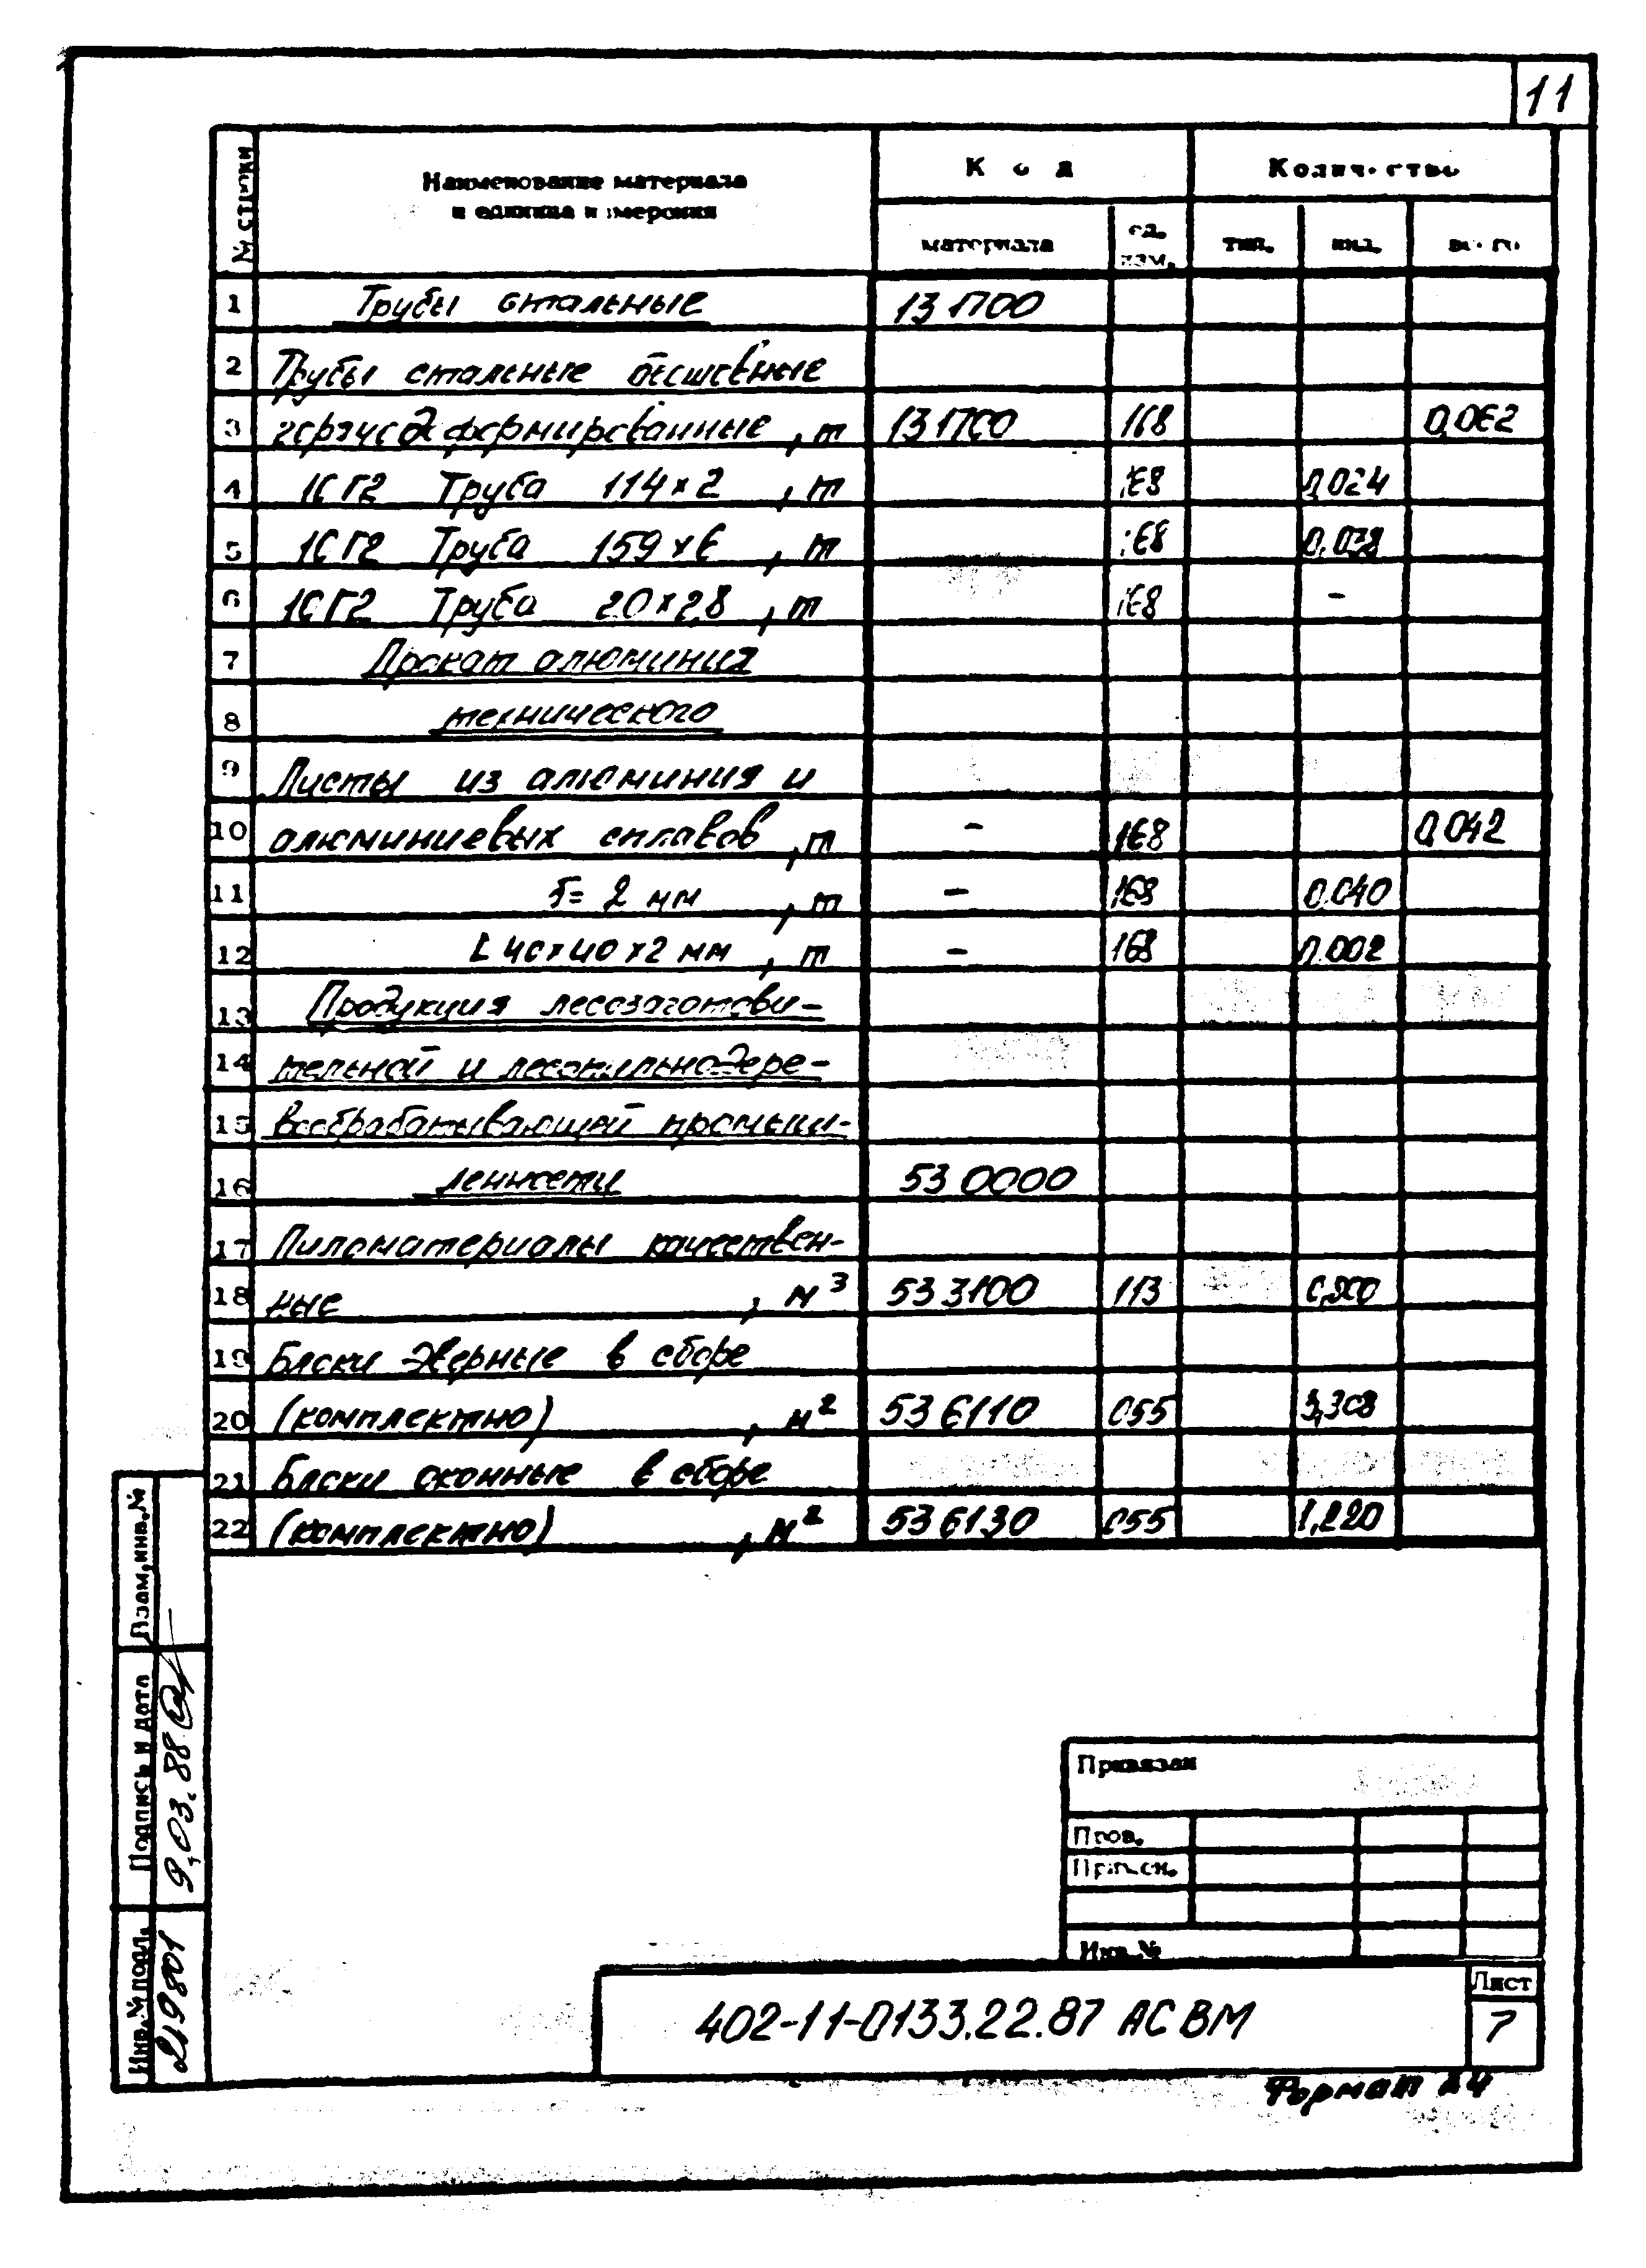 11
№ строки
Наименование материала и единица измерения
Код
Количество
материала
ед. изм.
тип.
инд.
всего
1 Трубы стальные 13 1700
2 Трубы стальные бесшовные
3 горячедеформированные, т 13 1700 168 0,062
4 10Г2 Труба 114×2, т 168 0,024
5 10Г2 Труба 159×6, т 168 0,038
6 10Г2 Труба 20×2,8, т 168 -
7 Прокат алюминия
8 технического
9 Листы из алюминия и
10 алюминиевых сплавов, т - 168 0,042
11 δ= 2 мм, т - 168 0.040
12 L 40×40×2 мм, т - 168 0.002
13 Продукция лесозаготови-
14 тельной и лесопильнодере-
15 вообрабатывающей промыш-
16 ленности 53 0000
17 Пиломатериалы качествен-
18 ные, м³ 53 3100 113
19 Блоки дверные в сборе
20 (комплектно), м² 53 6110 055 3,308
21 Блоки оконные в сборе
22 (комплектно), м² 53 6130 055 1,220
Взам.инв.№
Подпись и дата
9.03.88
Инв.№ подл.
219801
Привязан
Пров.
Инв.№
402-11-0133.22.87 АС ВМ
Лист
7
Формат А4